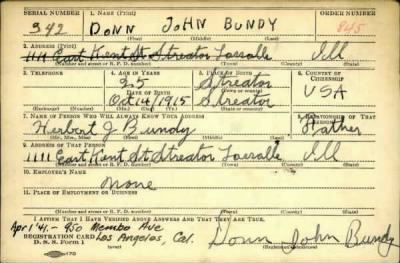 SERIAL NUMBER 1. NAME (Print) ORDER NUMBER
342 DONN JOHN BUNDY 845
(First) (Middle) (Last)
2. ADDRESS (Print)
1111 East Kent St Streator Lasalle Ill
(Number and street or R. F. D. number) (Town) (County) (State)
3. TELEPHONE 4. AGE IN YEARS 5. PLACE OF BIRTH 6. COUNTRY OF CITIZENSHIP
25 Streator
DATE OF BIRTH USA
Oct 14 1915 Streator
(Exchange) (Number) (Mo.) (Day) (Yr.) (State or country)
7. NAME OF PERSON WHO WILL ALWAYS KNOW YOUR ADDRESS 8. RELATIONSHIP OF THAT PERSON
Herbert J Bundy Father
(Mr., Mrs., Miss) (First) (Middle) (Last)
9. ADDRESS OF THAT PERSON
1111 East Kent St Streator Lasalle Ill
(Number and street or R. F. D. number) (Town) (County) (State)
10. EMPLOYER'S NAME
None
11. PLACE OF EMPLOYMENT OR BUSINESS
(Number and street or R. F. D. number) (Town) (County) (State)
I AFFIRM THAT I HAVE VERIFIED ABOVE ANSWERS AND THAT THEY ARE TRUE.
Apr 1 '41 - 950 Ave
REGISTRATION CARD Los Angeles, Cal. Donn John Bundy
D. S. S. Form 1